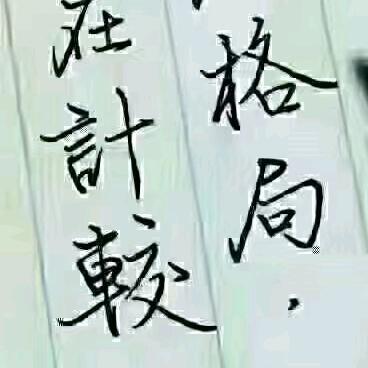 格局.
在計較